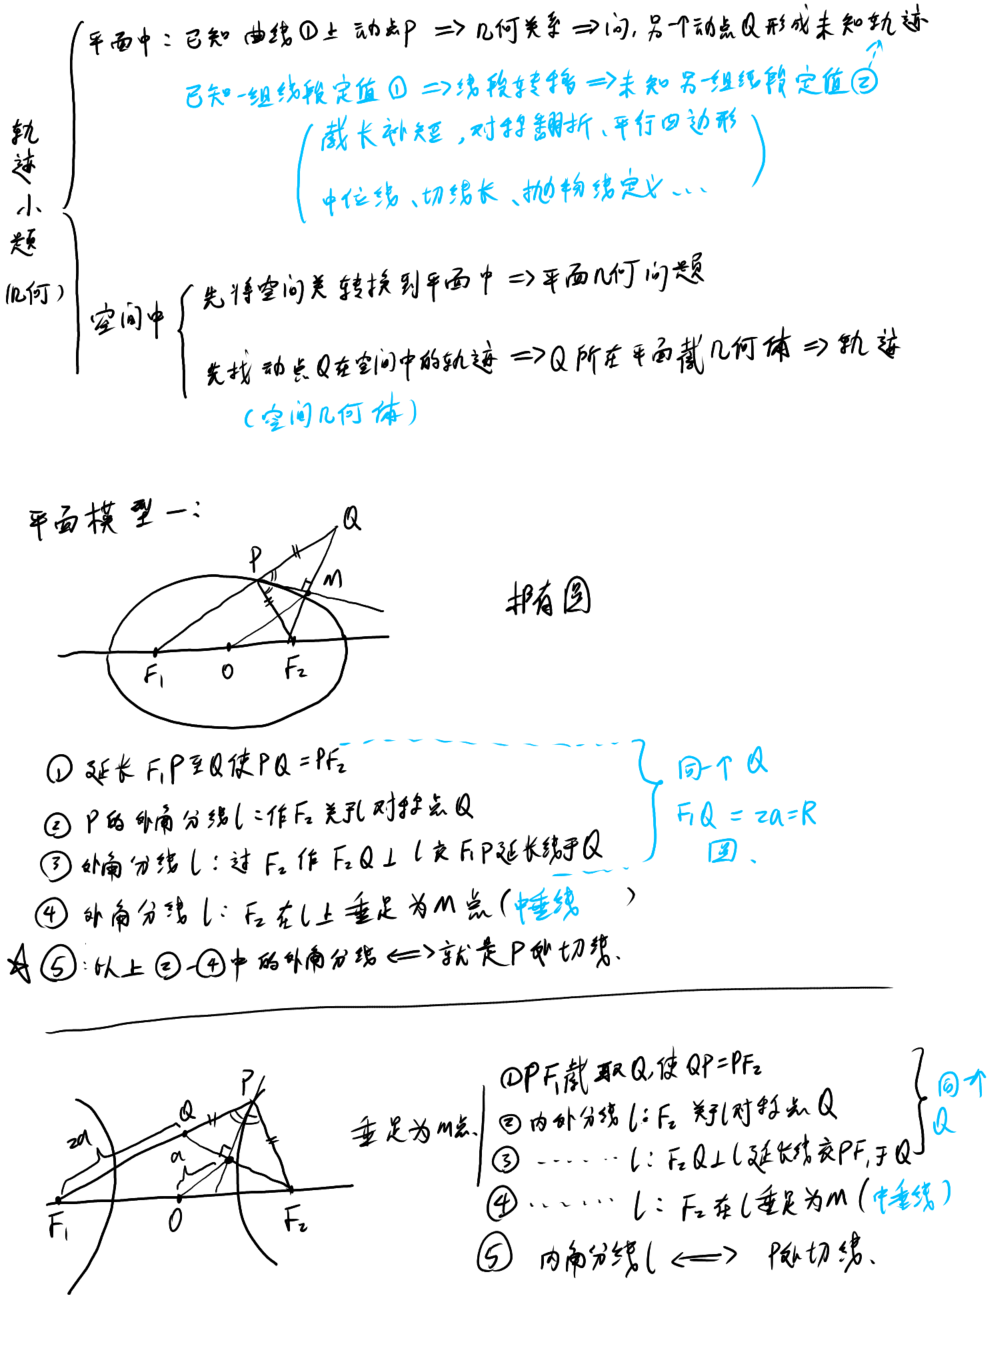 轨迹小题(几何)
平面中：已知 曲线①上 动点P ⇒ 几何关系 ⇒ 问, 另个动点Q 形成未知轨迹
已知一组线段定值① ⇒ 线段转移 ⇒ 未知另一组线段定值②
(截长补短, 对称翻折、平行四边形
中位线、切线长、抛物线定义...)
空间中
先将空间关转换到平面中 ⇒ 平面几何问题
先找动点Q在空间中的轨迹 ⇒ Q所在平面截几何体 ⇒ 轨迹
(空间几何体)
平面模型一：
Q
P
M
F₁ O F₂
① 延长 F₁P至Q使PQ=PF₂
② P的外角分线l：作F₂关于l对称点Q
③ 外角分线l：过F₂作F₂Q⊥l交F₁P延长线于Q
同一个Q
F₁Q=2a=R
圆.
④ 外角分线l：F₂在l上垂足为M点(中垂线)
☆⑤：以上②-④中的外角分线⟺就是P处切线.
P
Q
2a
a
F₁ O F₂
垂足为M点.
①PF₁截取Q,使QP=PF₂
② 内外分线l：F₂关于l对称点Q
③ ...... l：F₂Q⊥l延长线交PF₁于Q
同个Q
④ ...... l：F₂在l垂足为M(中垂线)
⑤ 内角分线l ⟺ P处切线.